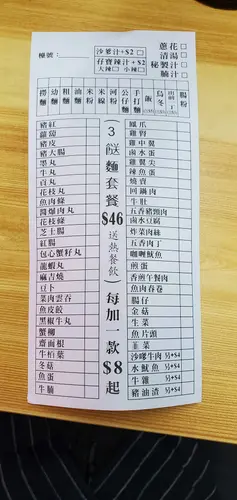 樓號：
沙爹汁+$2
仔寶辣汁+$2
大辣 小辣
蔥花
清湯
秘製汁
腩汁
撈麵
幼麵
粗麵
油麵
米粉
米線
河粉
公仔麵
手打麵
飯
烏冬
豬紅
蘿蔔
豬皮
豬大腸
墨丸
牛丸
貢丸
花枝丸
魚肉條
醬爆肉丸
花枝條
芝士腸
紅腸
包心蟹籽丸
龍蝦丸
麻吉燒
豆卜
菜肉雲吞
魚皮餃
黑椒牛丸
蟹柳
齋面根
牛柏葉
冬菇
魚蛋
牛腩
3餸麵套餐$46
送熱餐飲
每加一款$8起
鳳爪
雞腎
雞中翼
鹵水蛋
雞翼尖
辣魚蛋
燒賣
回鍋肉
牛肚
五香豬頸肉
鹵水豆腐
炸菜肉絲
五香肉丁
咖喱魷魚
煎蛋
香煎午餐肉
魚肉春卷
腸仔
金菇
生菜
魚片頭
韮菜
沙嗲牛肉 另+$4
水魷魚 另+$4
牛雜 另+$4
豬油渣 另+$4